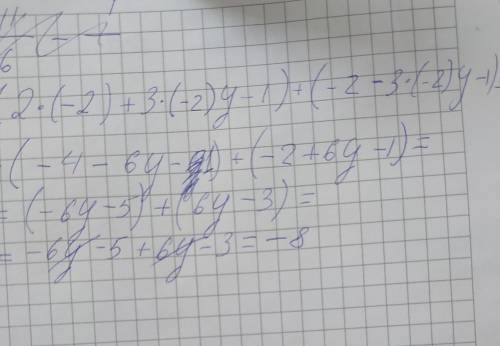 (2·(-2)+3·(-2)y-1)+(-2-3·(-2)y-1)
(-4-6y-1)+(-2+6y-1)=
=(-6y-5)+(6y-3)=
=-6y-5+6y-3=-8